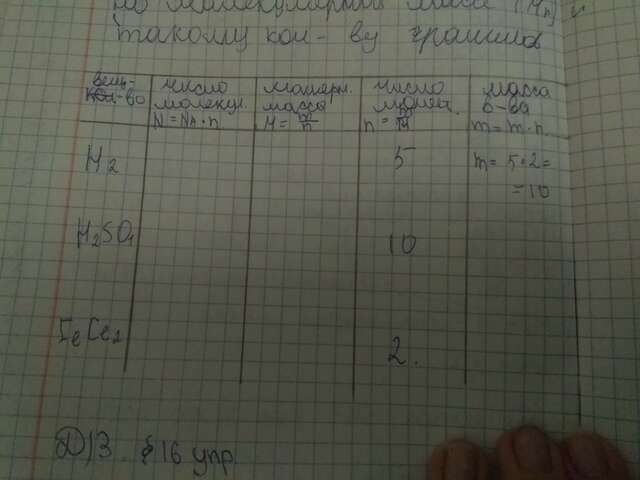 по молекулярной массе (Mr) и
такому кол-ву граммов
вещ-во
число молекул. N = NA · n
масса M = m/n
число n = m/M
масса в-ва m = M · n
H2
5
m = 5 · 2 =
= 10
H2SO4
10
FeCl2
2.
Д/З. § 16 упр.